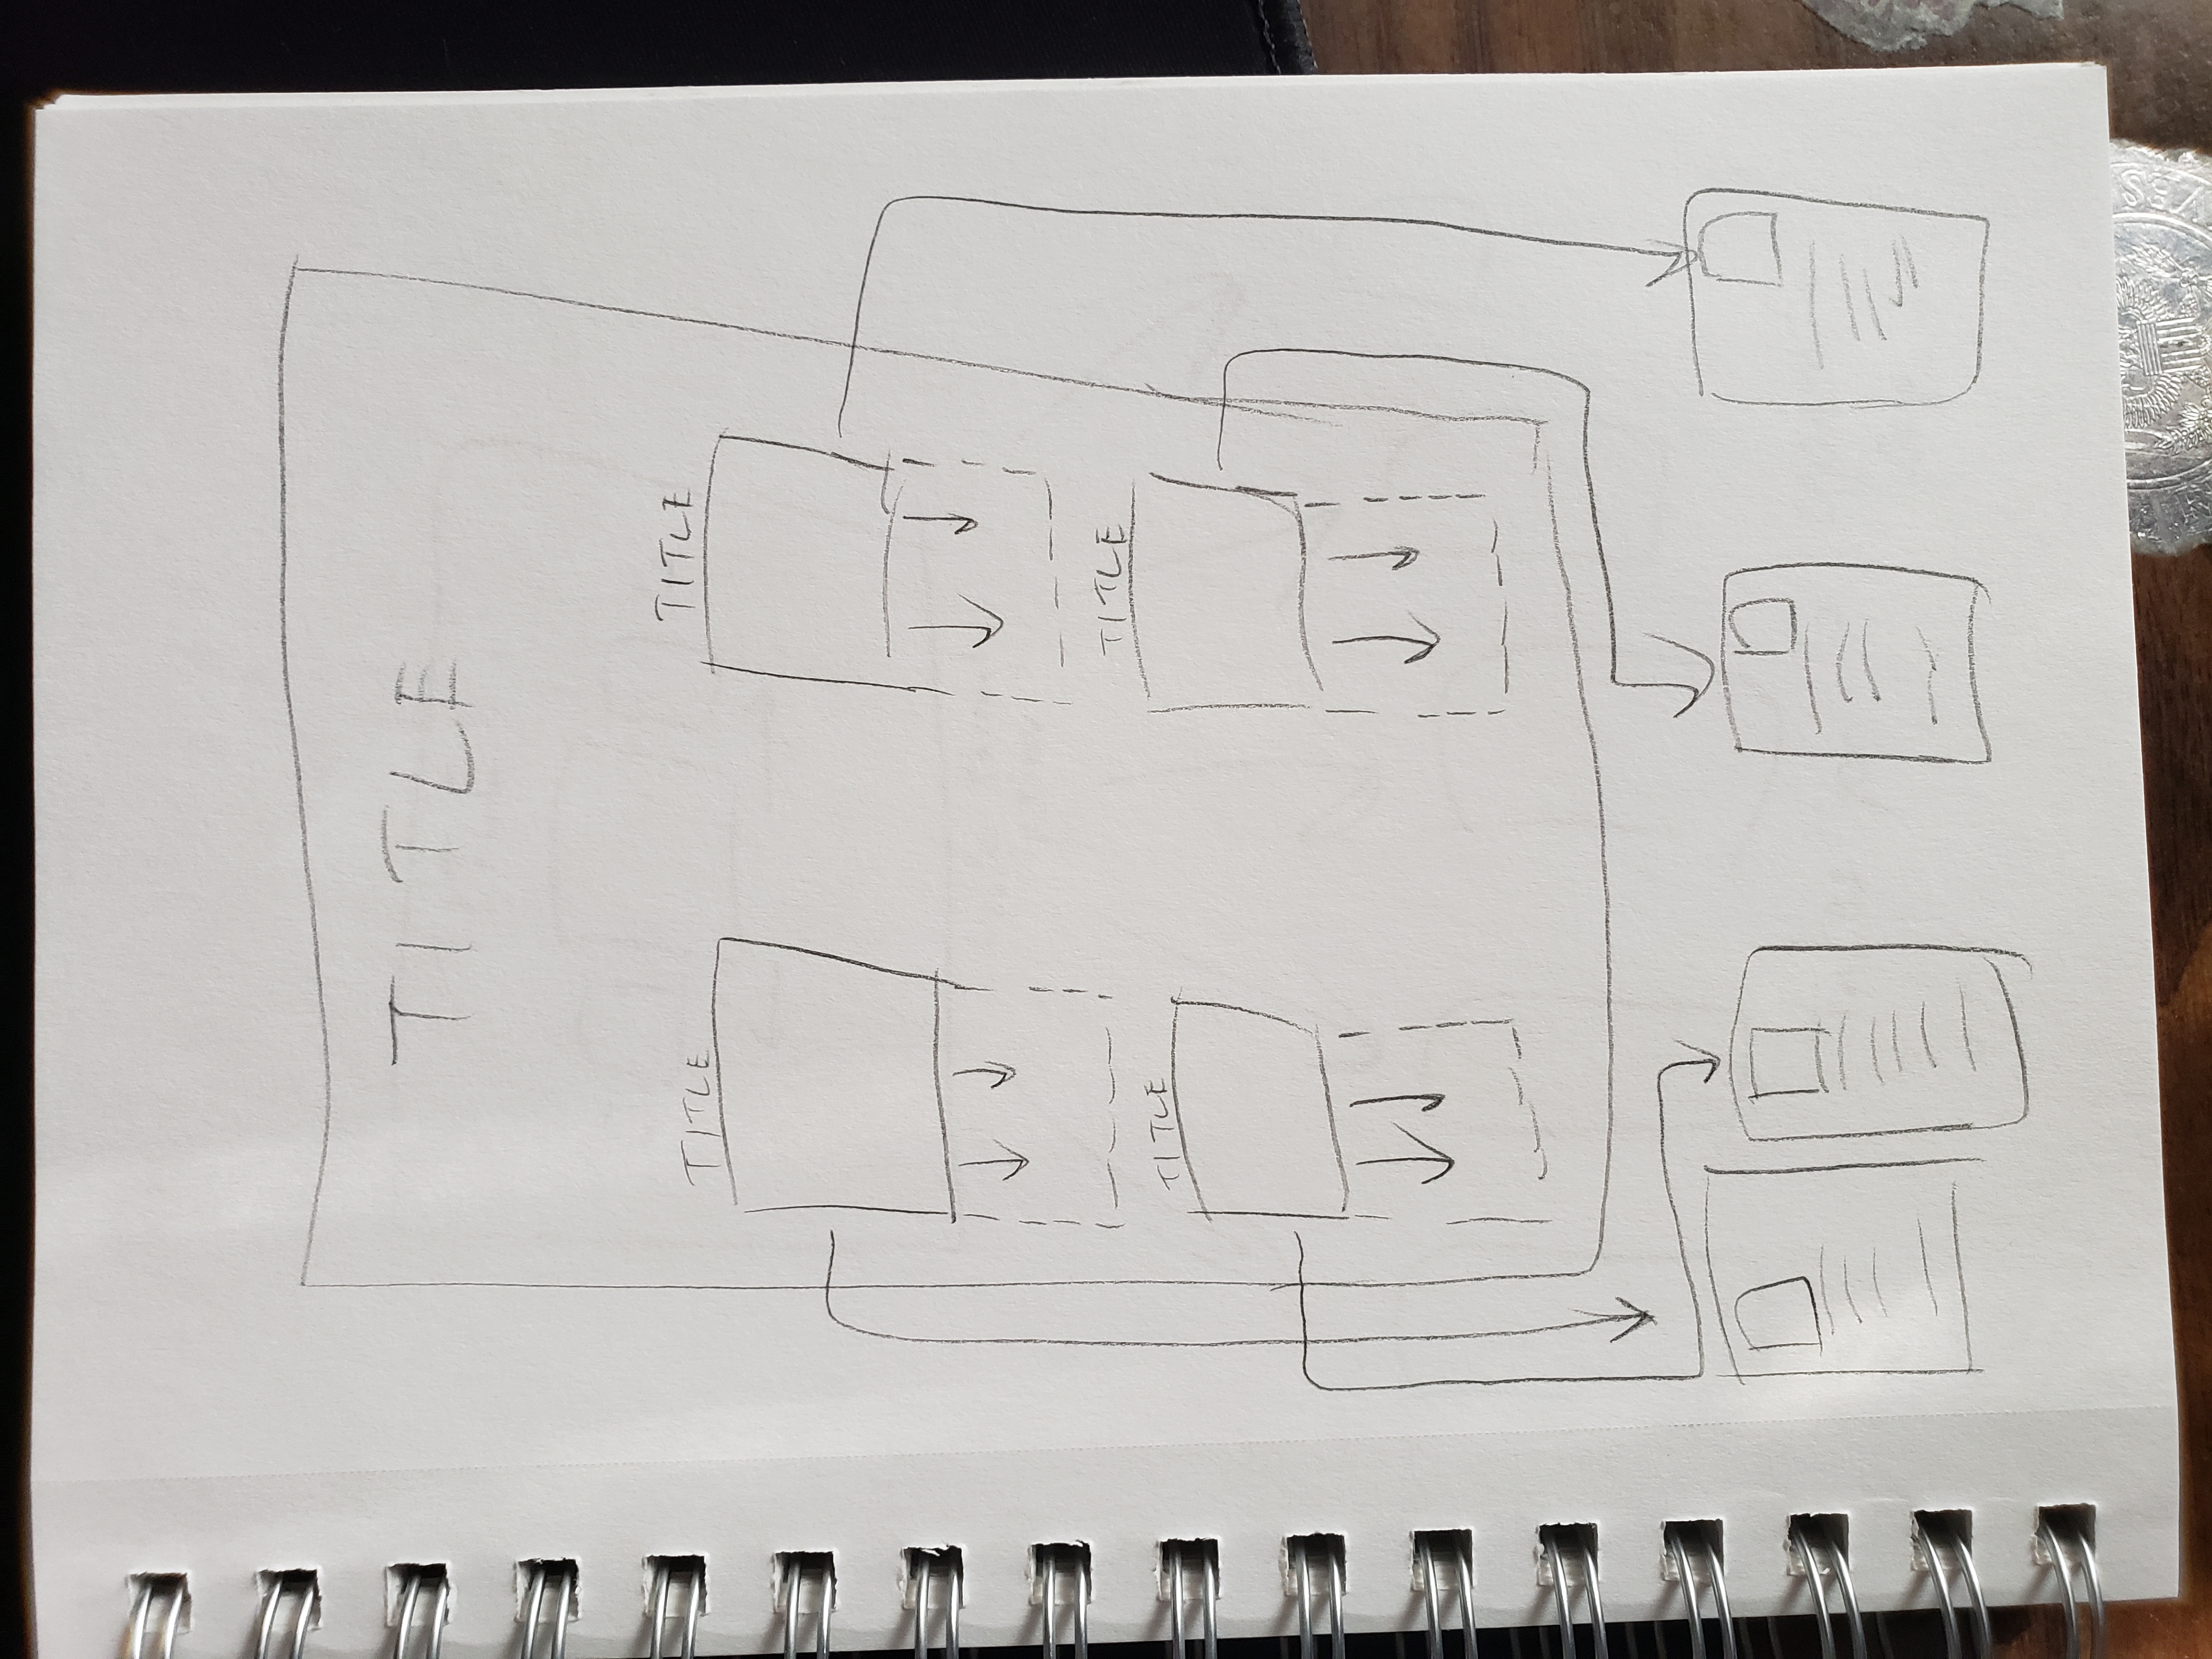 TITLE
TITLE
TITLE
TITLE
TITLE